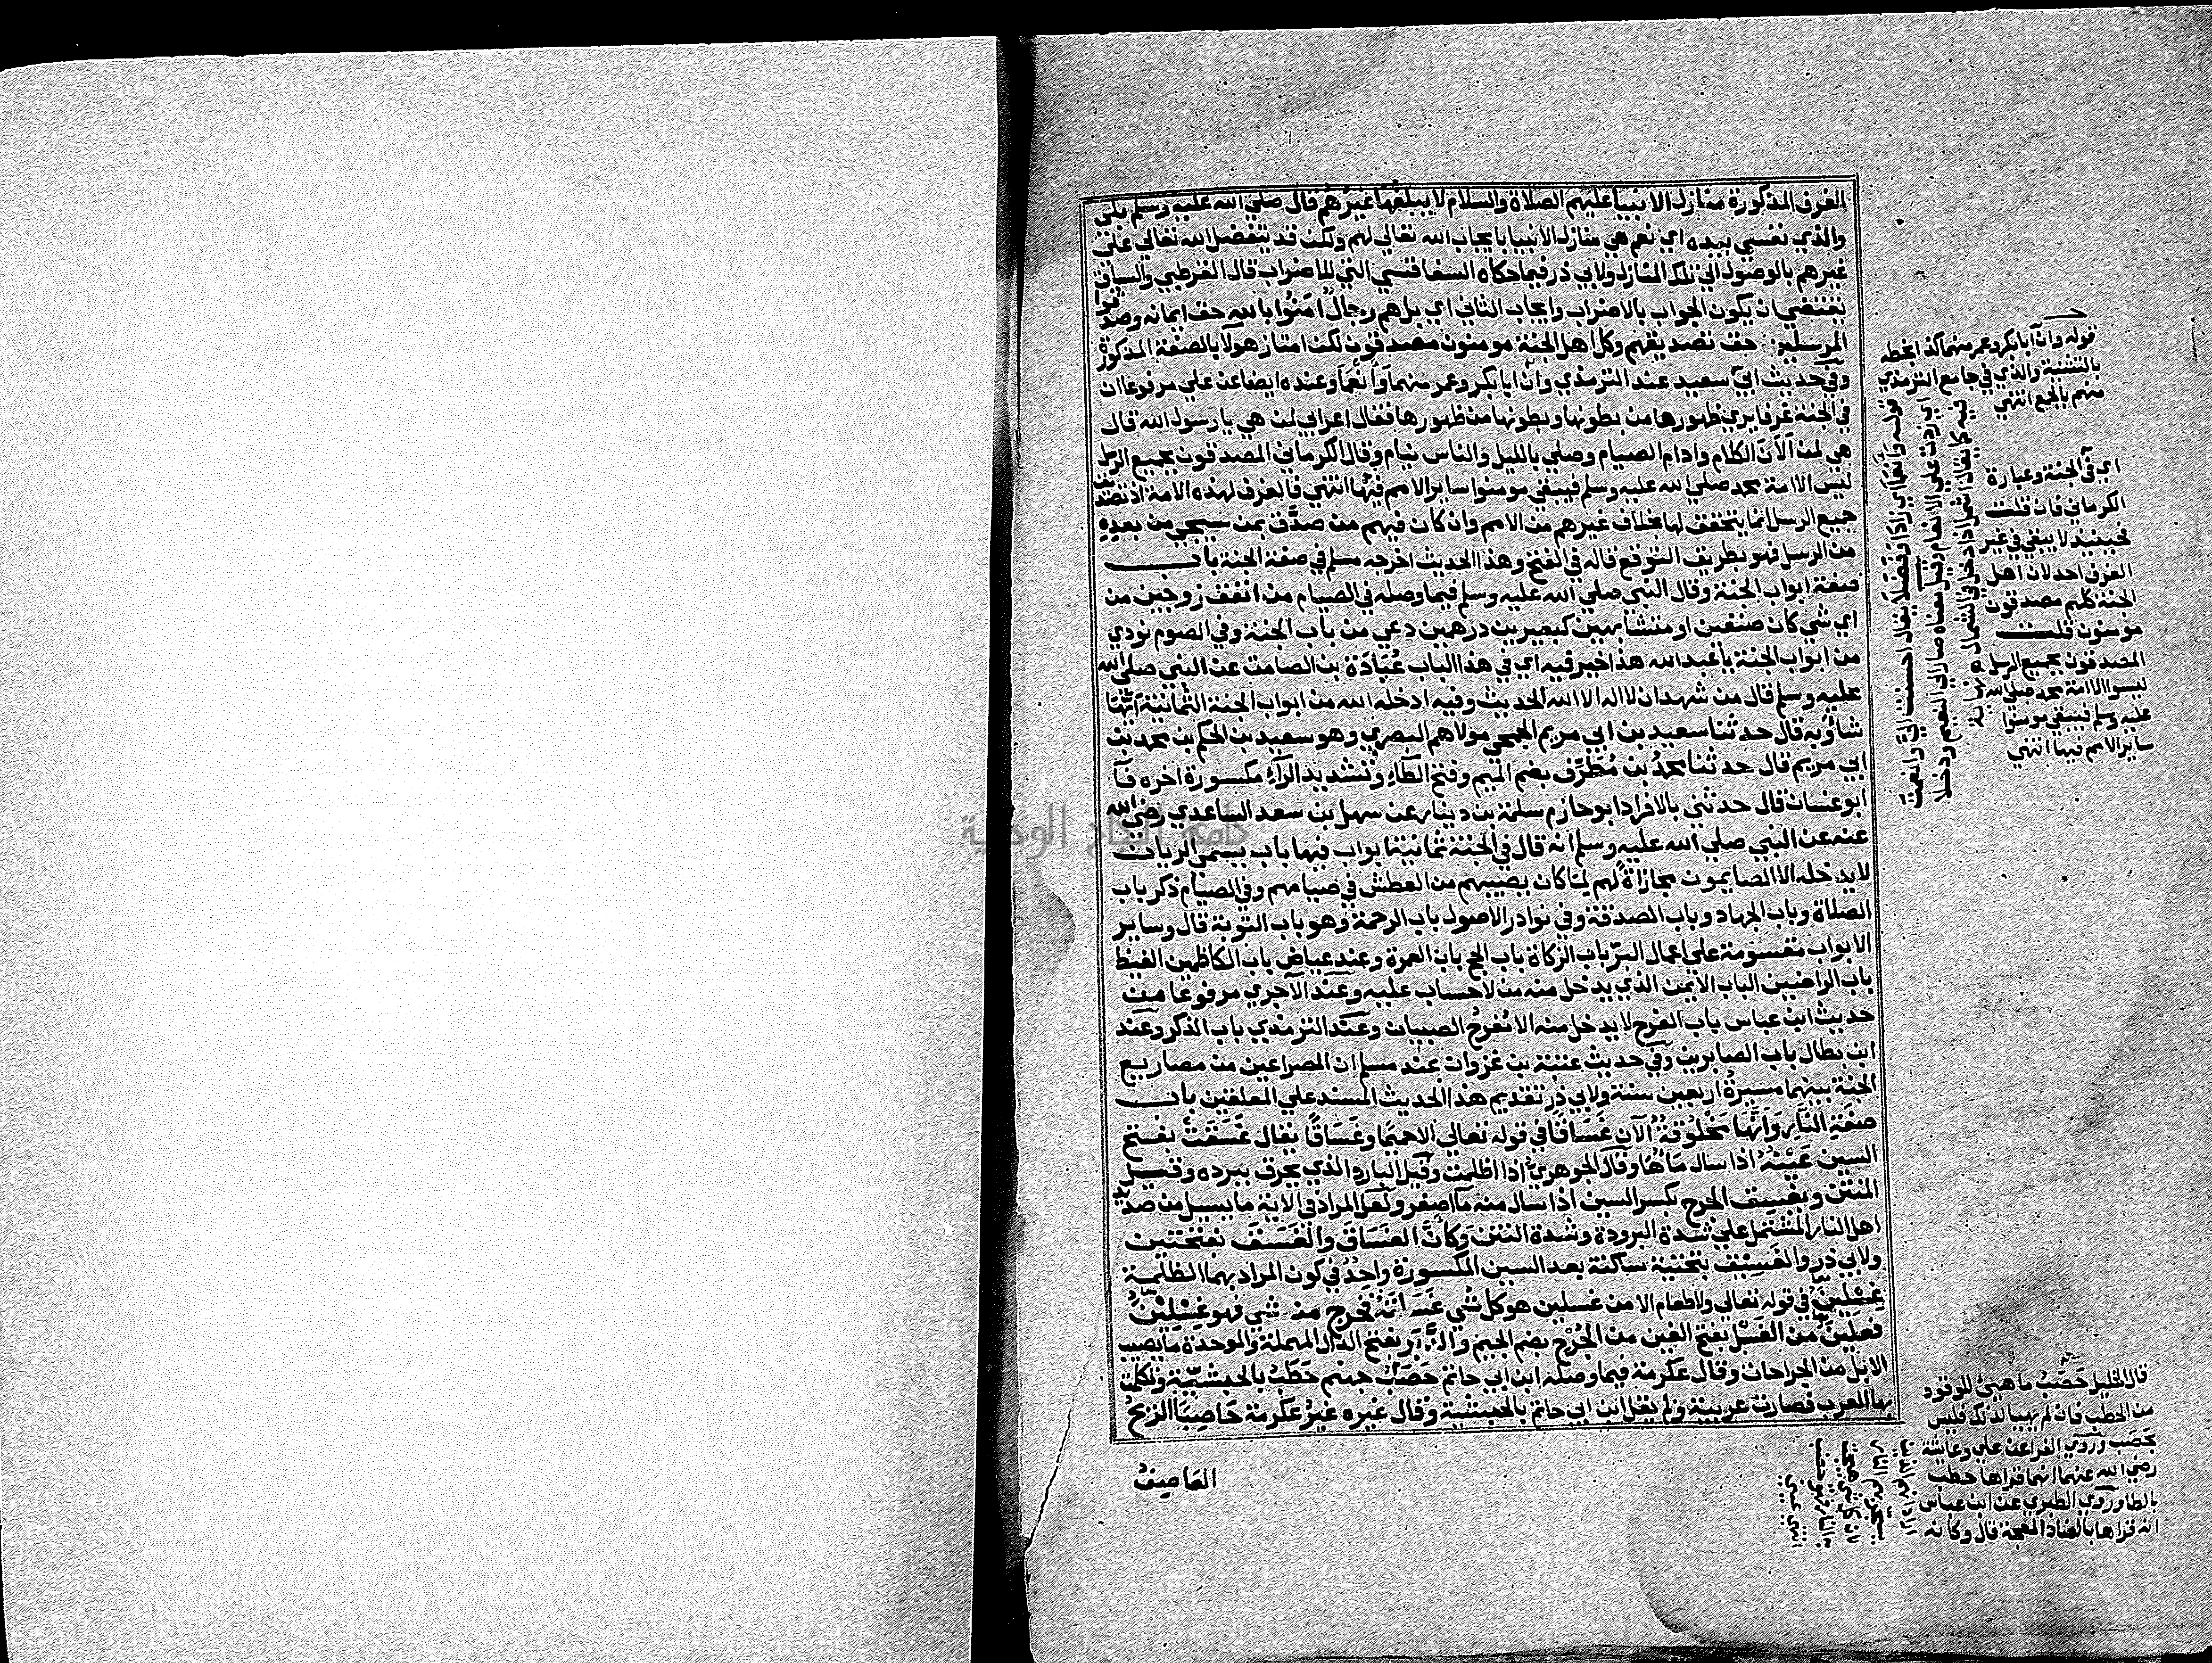 الغرف المذكورة منازل الانبيا عليهم الصلاة والسلام لا يبلغها غيرهم قال صلي الله عليه وسلم بلي
والذي نفسي بيده اي نعم هي منازل الانبيا بايجاب الله تعالي لهم ولكن قد يتفضل الله تعالي علي
غيرهم بالوصول الي تلك المنازل ولابي ذر فيما حكاه السفاقسي التي للاضراب قال القرطبي والسياق
يقتضي ان يكون الجواب بالاضراب وايجاب الثاني اي بل هم رجال امنوا بالله حق ايمانه وصدقوا
المرسلين حق تصديقهم وكل اهل الجنة مومنون مصدقون لكن امتاز هولا بالصفة المذكورة
وفي حديث ابي سعيد عند الترمذي وان ابا بكر وعمر منهما وانعما وعنده ايضا عن علي مرفوعا ان
في الجنة غرفا يري ظهورها من بطونها وبطونها من ظهورها فقال اعرابي لمن هي يا رسول الله قال
هي لمن الان الكلام وادام الصيام وصلي بالليل والناس نيام وقال الكرماني المصدقون بجميع الرسل
ليس الا امة محمد صلي الله عليه وسلم فيبقي مومنوا ساير الامم فيها انتهي فالغرف لهذه الامة اذ تصديق
جميع الرسل انما يتحقق لها بخلاف غيرهم من الامم وان كان فيهم من صدق بمن سيجي من بعده
من الرسل فهو بطريق التوقع قاله في الفتح وهذا الحديث اخرجه مسلم في صفة الجنة باب
صفة ابواب الجنة وقال النبي صلي الله عليه وسلم فيما وصله في الصيام من انفق زوجين من
اي شي كان صنفين او متشابهين كبعيرين درهمين دعي من باب الجنة وفي الصوم نودي
من ابواب الجنة يا عبد الله هذا خير فيه اي في هذا الباب عبادة بن الصامت عن النبي صلي الله
عليه وسلم قال من شهد ان لا اله الا الله الحديث وفيه ادخله الله من ابواب الجنة الثمانية ايها
شا وبه قال حدثنا سعيد بن ابي مريم الجمحي مولاهم البصري وهو سعيد بن الحكم بن محمد بن
ابي مريم قال حدثنا محمد بن مطرف بضم الميم وفتح الطاء وتشديد الراء مكسورة اخره فا
ابو غسان قال حدثني بالافراد ابو حازم سلمة بن دينار عن سهل بن سعد الساعدي رضي الله
عنه عن النبي صلي الله عليه وسلم انه قال في الجنة ثمانية ابواب فيها باب يسمي الريان
لا يدخله الا الصايمون مجازاة لهم لما كان يصيبهم من العطش في صيامهم وفي الصيام ذكر باب
الصلاة وباب الجهاد وباب الصدقة وفي نوادر الاصول باب الرحمة وهو باب التوبة قال وساير
الابواب مقسومة علي اعمال البر باب الزكاة باب الحج باب العمرة وعند عياض باب الكاظمين الغيظ
باب الراضين الباب الايمن الذي يدخل منه من لا حساب عليه وعند الاجري مرفوعا من
حديث ابن عباس باب الفرح لا يدخل منه الا مفرح الصبيان وعند الترمذي باب الذكر وعند
ابن بطال باب الصابرين وفي حديث عتبة بن غزوان عند مسلم ان المصراعين من مصاريع
الجنة بينهما مسيرة اربعين سنة ولابي ذر تقديم هذا الحديث المسند علي المعلقين باب
صفة النار وانها مخلوقة الآن غساقا في قوله تعالي الا حميما وغساقا يقال غسقت بفتح
السين عينه اذا سال ماها وقال الجوهري اذا اظلمت وقيل البارد الذي يحرق ببرده وقيل
المنتن ويغسق الجرح بكسر السين اذا سال منه ما اصفر ولعل المراد في الاية ما يسيل من صديد
اهل النار المشتمل علي شدة البرودة وشدة النتن وكان الغساق والغسق بفتحتين
ولابي ذر والغسيق بتحتية ساكنة بعد السين المكسورة واحد في كون المراد بهما الظلمة
غسلين في قوله تعالي ولا طعام الا من غسلين هو كل شي غسلته فخرج منه شي فهو غسلين
فعلين من الغسل بفتح الغين من الجرح بضم الجيم والدبر بفتح الدال المهملة والموحدة ما يصيب
الابل من الجراحات وقال عكرمة فيما وصله ابن ابي حاتم حصب جهنم حطب بالحبشية وتكلمت
بها العرب فصارت عربية ولم يقل ابن ابي حاتم بالحبشية وقال غيره غير عكرمة حاصبا الريح
العاصف
قوله وان ابا بكر وعمر منهما كذا بخطه
بالتثنية والذي في جامع الترمذي
منهم بالجمع انتهي
قوله وانعما اي زادا وفضلا يقال احسنت الي وانعمت
اي زدت علي الانعام وقيل معناه صارا الي النعيم ودخلا
فيه كما يقال اشمل اذا دخل في الشمال نهاية
اي في الجنة وعبارة
الكرماني فان قلت
فحينيذ لا يبقي في غير
الغرف احد لان اهل
الجنة كلهم مصدقون
مومنون قلت
المصدقون بجميع الرسل
ليسوا الا امة محمد صلي الله
عليه وسلم فيبقي مومنوا
ساير الامم فيها انتهي
قال الخليل حصب ما هيئ للوقود
من الحطب فان لم يهيا لذلك فليس
بحصب وروي الفرا عن علي وعايشة
رضي الله عنهما انهما قراها حطب
بالطا وروي الطبري عن ابن عباس
انه قراها بالضاد المعجمة قال وكانه
جامعة النجاح الوطنية